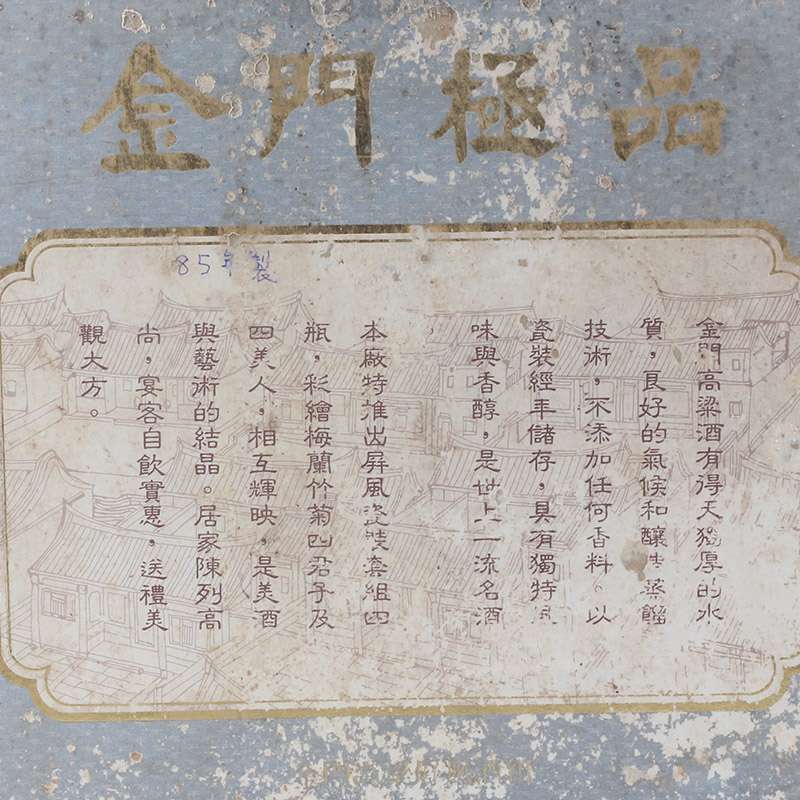 金門極品
85年製
金門高粱酒有得天獨厚的水
質，良好的氣候和釀造蒸餾
技術，不添加任何香料。以
瓷裝經年儲存，具有獨特風
味與香醇，是世上一流名酒
本廠特推出屏風瓷裝套組四
瓶，彩繪梅蘭竹菊四君子及
四美人，相互輝映，是美酒
與藝術的結晶。居家陳列高
尚，宴客自飲實惠，送禮美
觀大方。